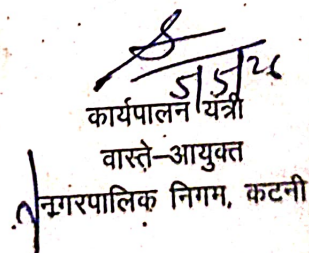 5/5/26
कार्यपालन यंत्री
वास्ते–आयुक्त
नगरपालिक निगम, कटनी